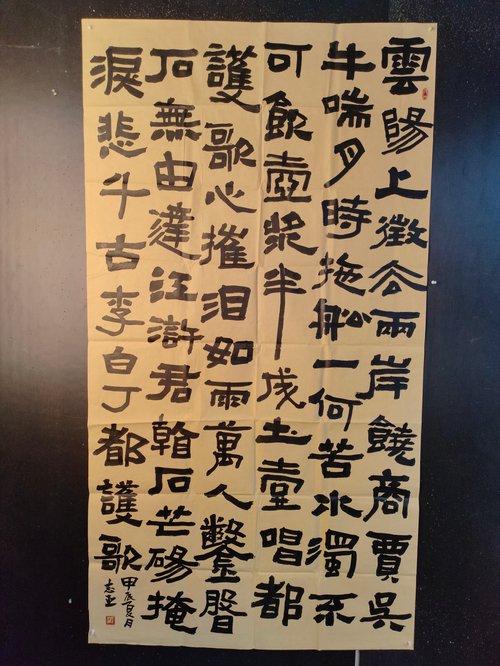 雲陽上徵去兩岸饒商賈吳
牛喘月時拖舩一何苦水濁不
可飲壺漿半成土壹唱都
護歌心摧泪如雨萬人鑿
石無由達江滸君石芒碭掩
淚悲千古李白丁都護歌
甲辰夏月